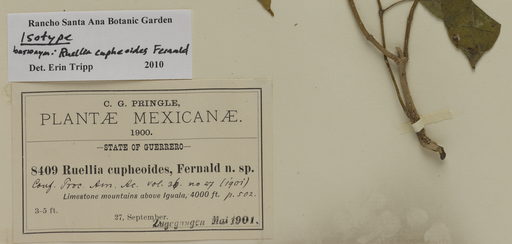 Rancho Santa Ana Botanic Garden
Isotype
basionym: Ruellia cupheoides Fernald
Det. Erin Tripp 2010
C. G. PRINGLE,
PLANTÆ MEXICANÆ.
1900.
—STATE OF GUERRERO—
8409 Ruellia cupheoides, Fernald n. sp.
Conf. Proc. Am. Ac. vol. 36. no 27 (1901)
p. 502.
Limestone mountains above Iguala, 4000 ft.
3-5 ft.
27, September.
Eingegangen Mai 1901.